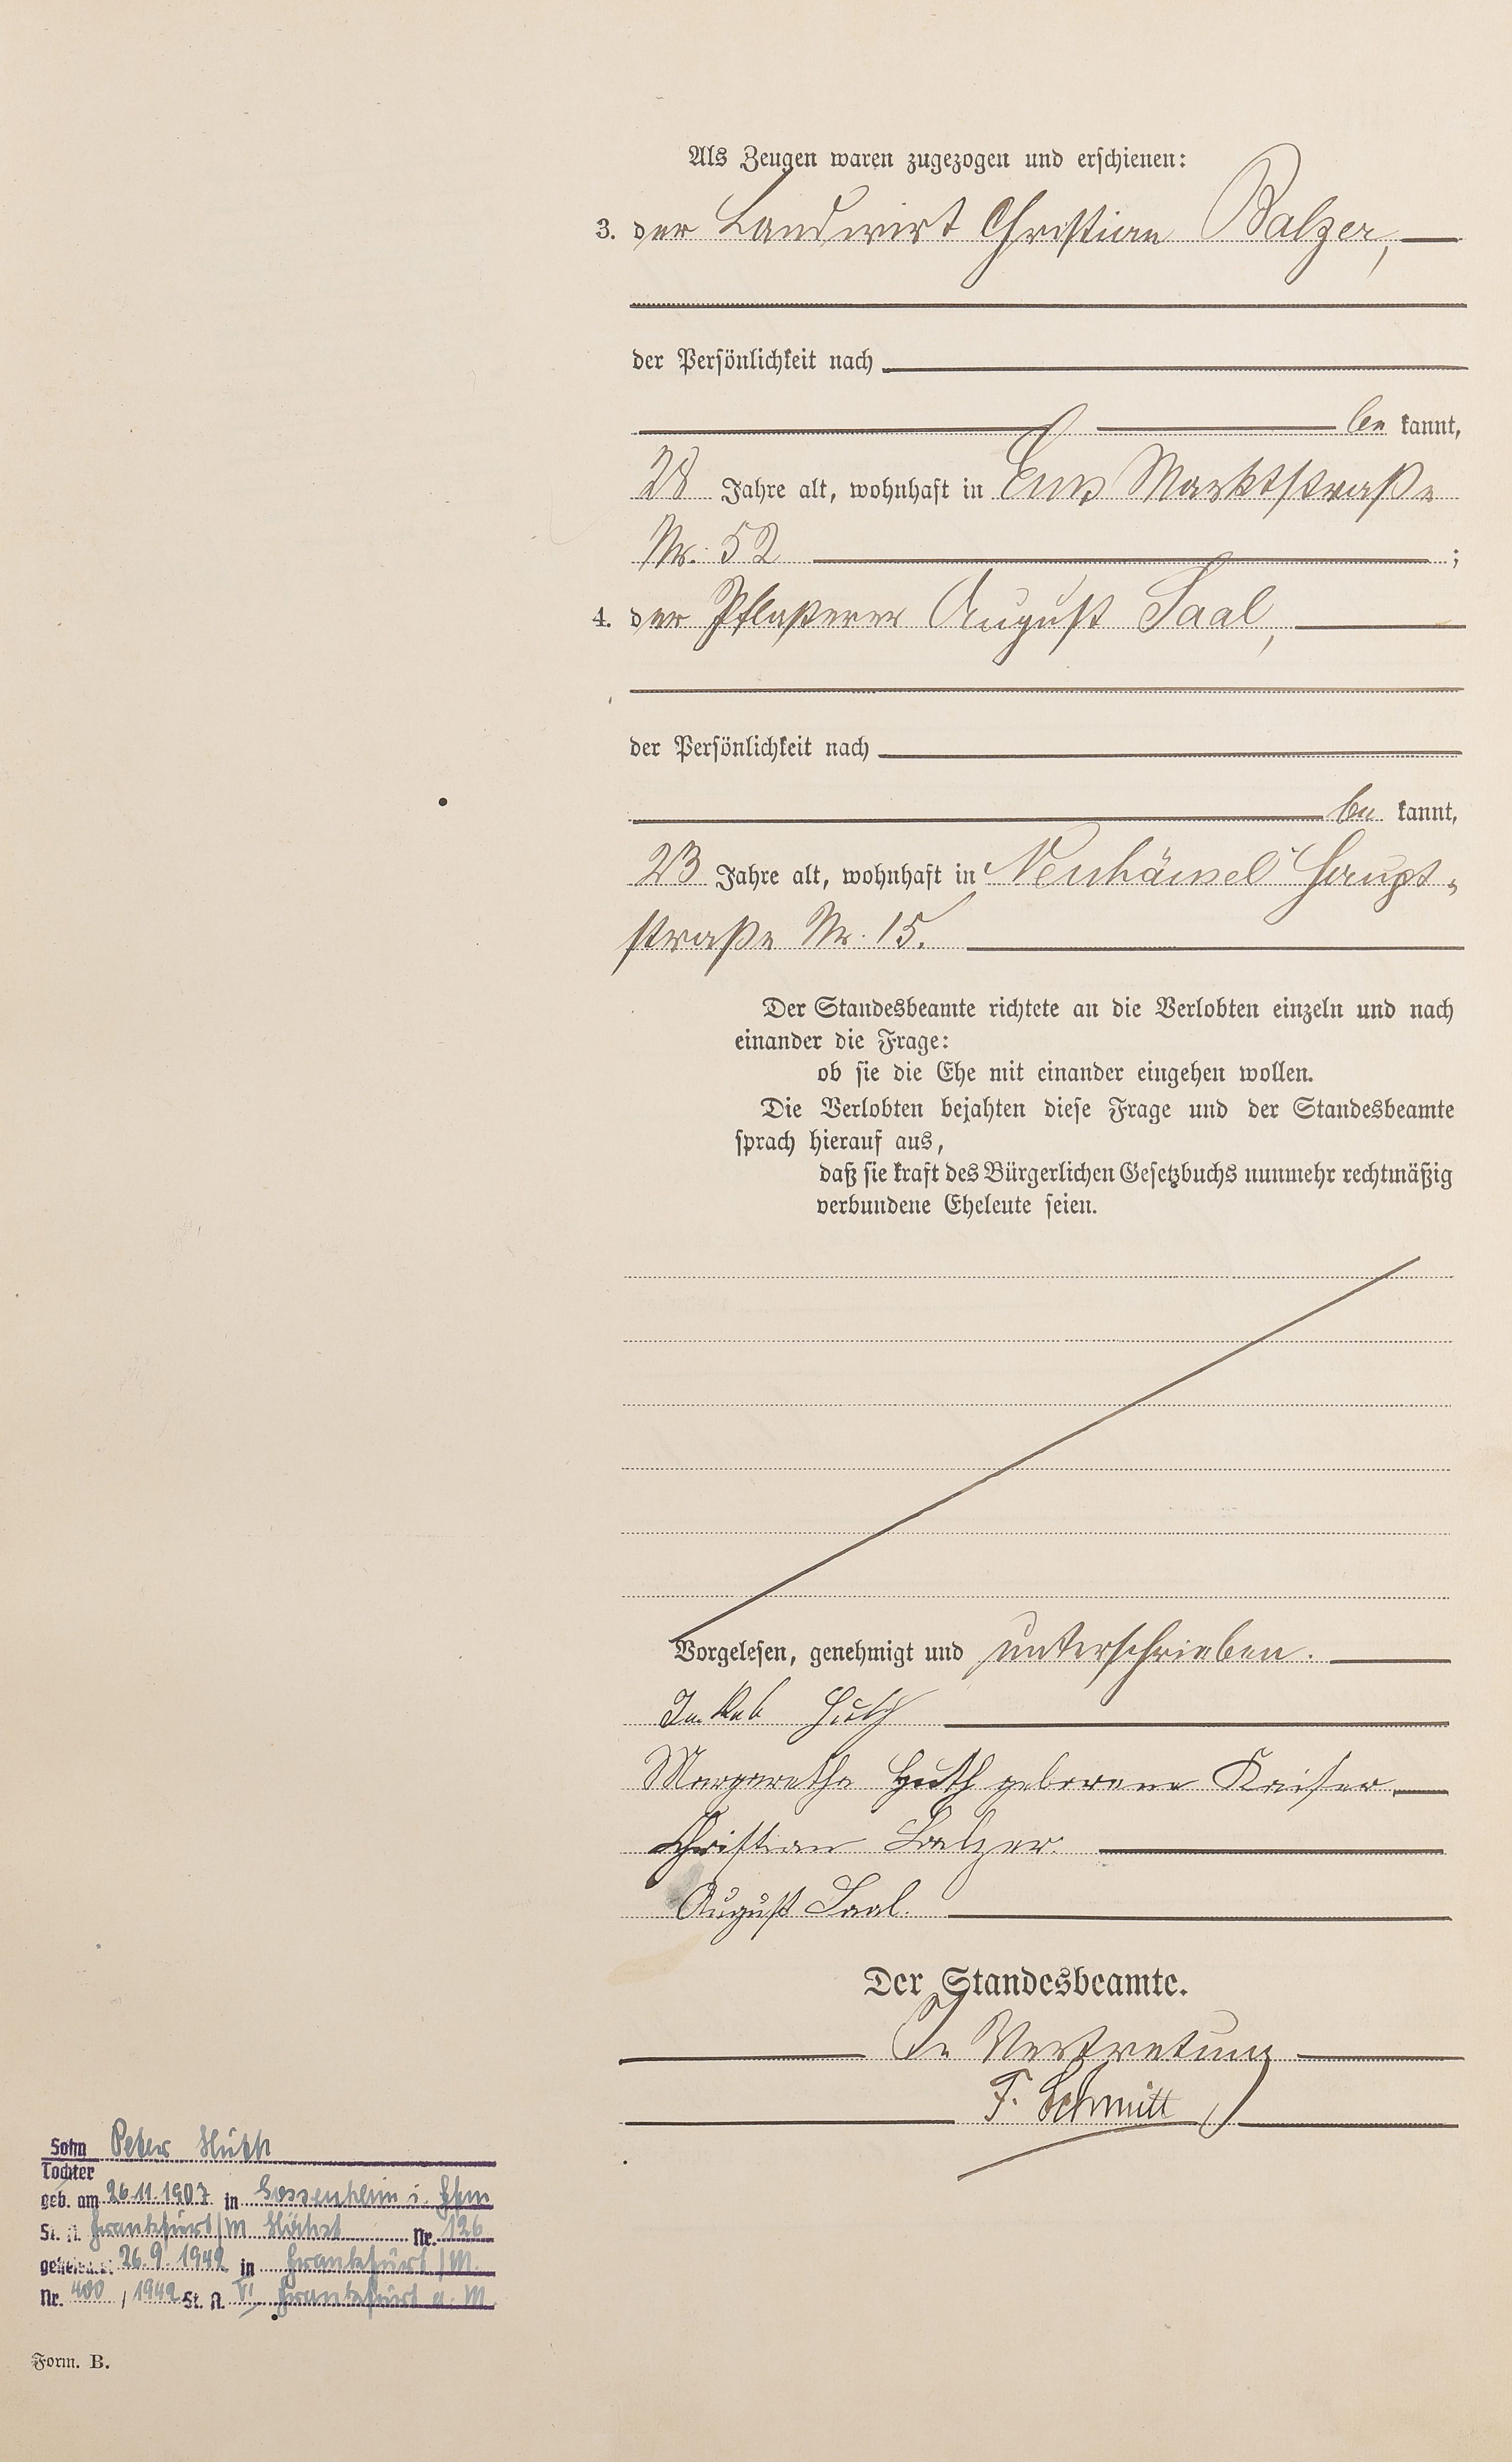 Als Zeugen waren zugezogen und erschienen:
3. der Landwirt Christian Balzer,
der Persönlichkeit nach
be kannt,
28 Jahre alt, wohnhaft in Ems Marktstraße
Nr. 52 ;
4. der Pflasterer August Saal,
der Persönlichkeit nach
be kannt,
23 Jahre alt, wohnhaft in Neuhäusel Haupt-
straße Nr. 15.
Der Standesbeamte richtete an die Verlobten einzeln und nach
einander die Frage:
ob sie die Ehe mit einander eingehen wollen.
Die Verlobten bejahten diese Frage und der Standesbeamte
sprach hierauf aus,
daß sie kraft des Bürgerlichen Gesetzbuchs nunmehr rechtmäßig
verbundene Eheleute seien.
Vorgelesen, genehmigt und unterschrieben.
Jakob Huth
Margaretha Huth geborene Kaiser
Christian Balzer.
August Saal.
Der Standesbeamte.
In Vertretung
F. Schmitt
Sohn Peter Huth
Tochter
geb. am 26.11.1907 in Sossenheim
St. A. Frankfurt/M Höchst Nr. 126
geheiratet 26.9.1942 in Frankfurt/M.
Nr. 400 / 1942 St. A. VI Frankfurt a. M.
Form. B.